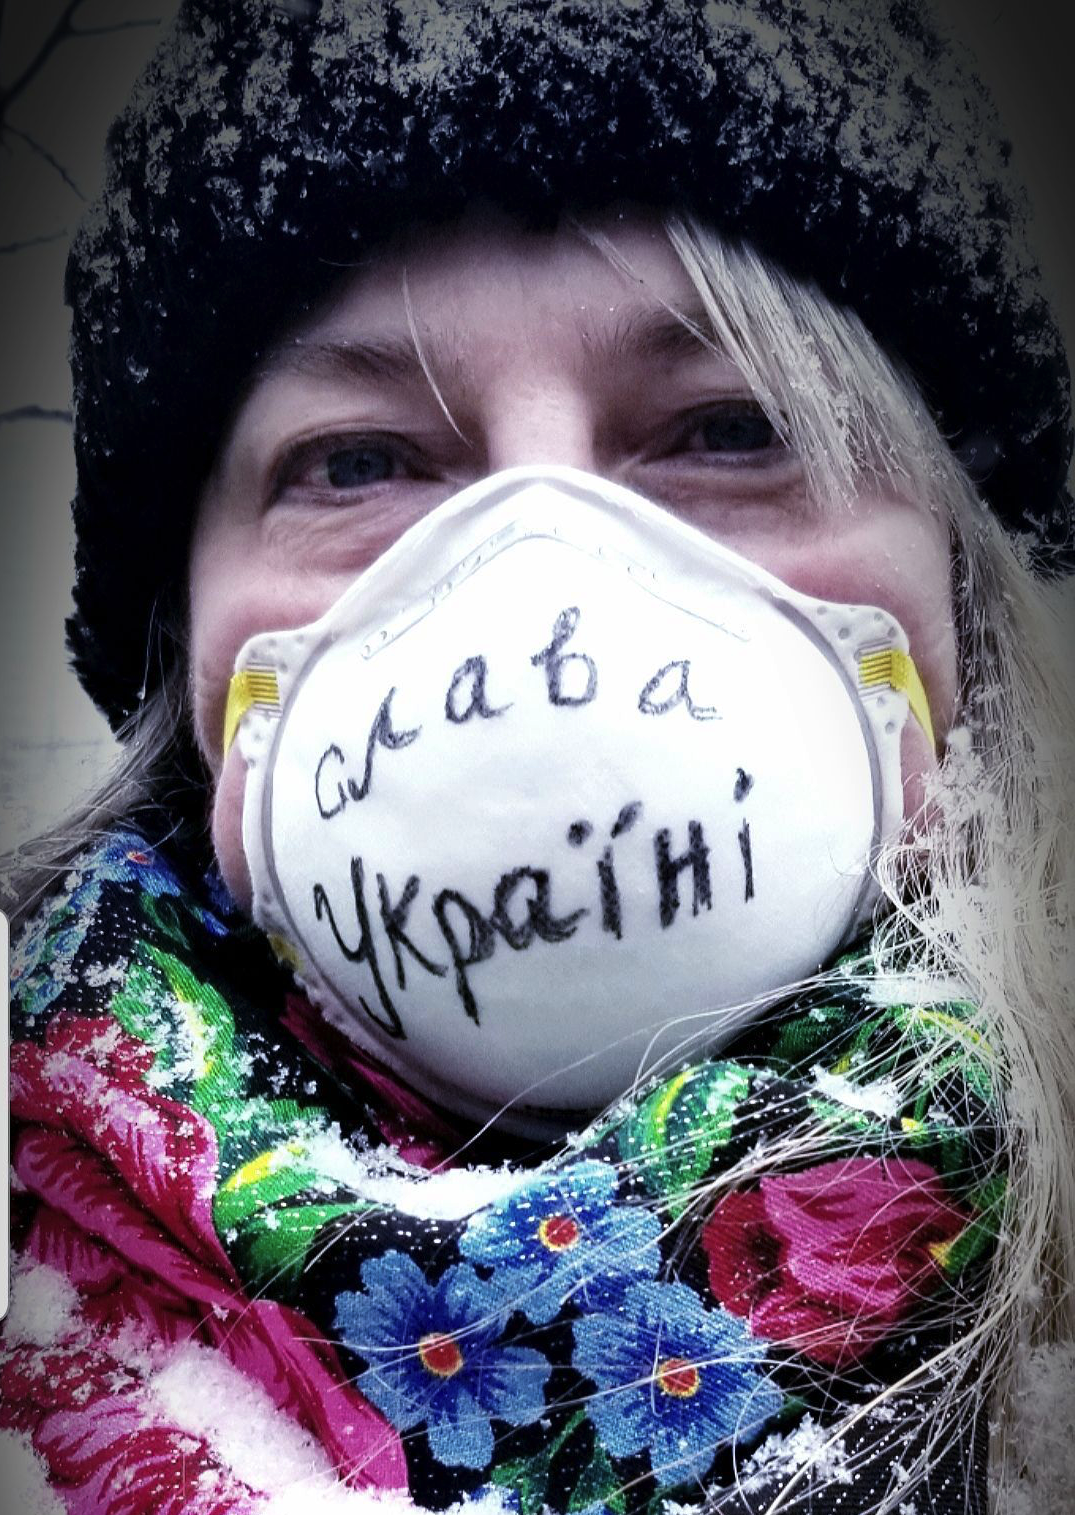 слава
Україні